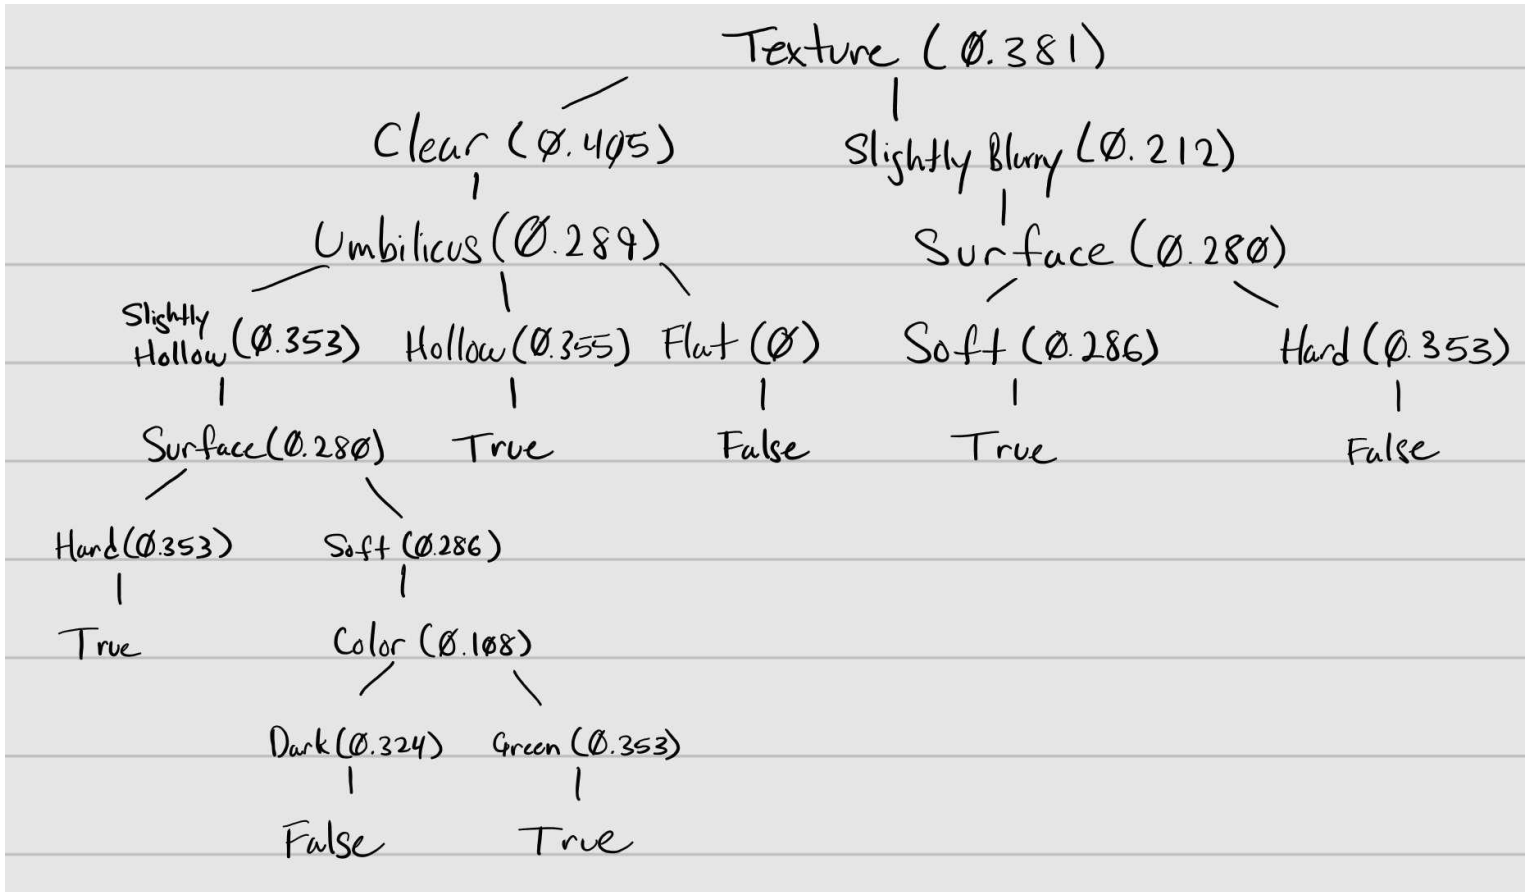 Texture (0.381)
Clear (0.405) Slightly Blurry (0.212)
Umbilicus (0.289) Surface (0.280)
Slightly
Hollow (0.353) Hollow (0.355) Flat (0) Soft (0.286) Hard (0.353)
Surface (0.280) True False True False
Hard (0.353) Soft (0.286)
True Color (0.108)
Dark (0.324) Green (0.353)
False True